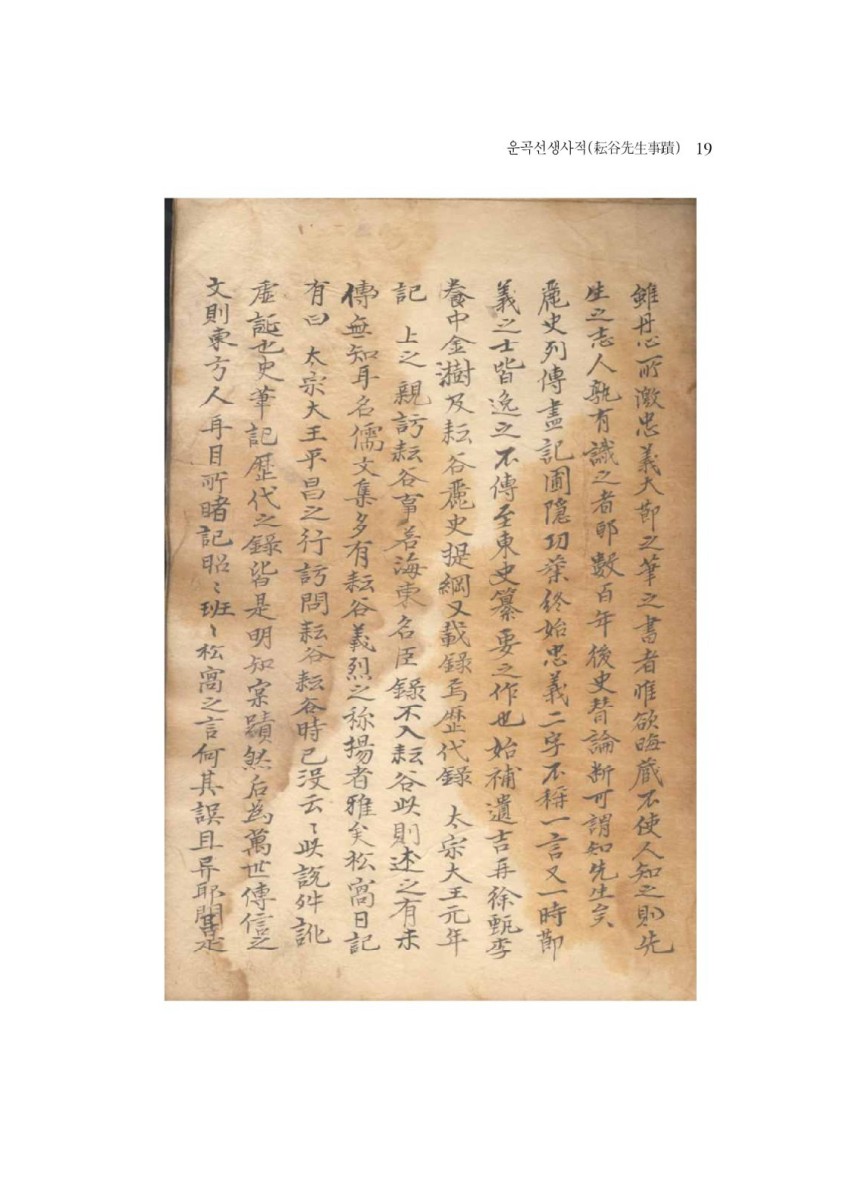 운곡선생사적(耘谷先生事蹟) 19
雖丹心所激忠義大節之筆之書者唯欲晦藏不使人知之則先
生之志人孰有識之者耶數百年後史督論断可謂知先生矣
麗史列傳盡記圃隠功業終始忠義二字不稱一言又一時節
義之士皆逸之不傳至東史纂要之作也始補遺吉再徐甄李
養中金澍及耘谷麗史提綱又載錄焉歷代錄 太宗大王元年
記 上之 親訪耘谷事若海東名臣錄不入耘谷此則述之有未
傳無知耳名儒文集多有耘谷義烈之称揚者雅矣松窩日記
有曰 太宗大王平昌之行訪問耘谷耘谷時已没云〻此說舛訛
虛誕也史筆記歷代之錄皆是明知宲蹟然后為萬世傳信之
文則東方人耳目所睹記昭〻班〻松窩之言何其誤且异耶